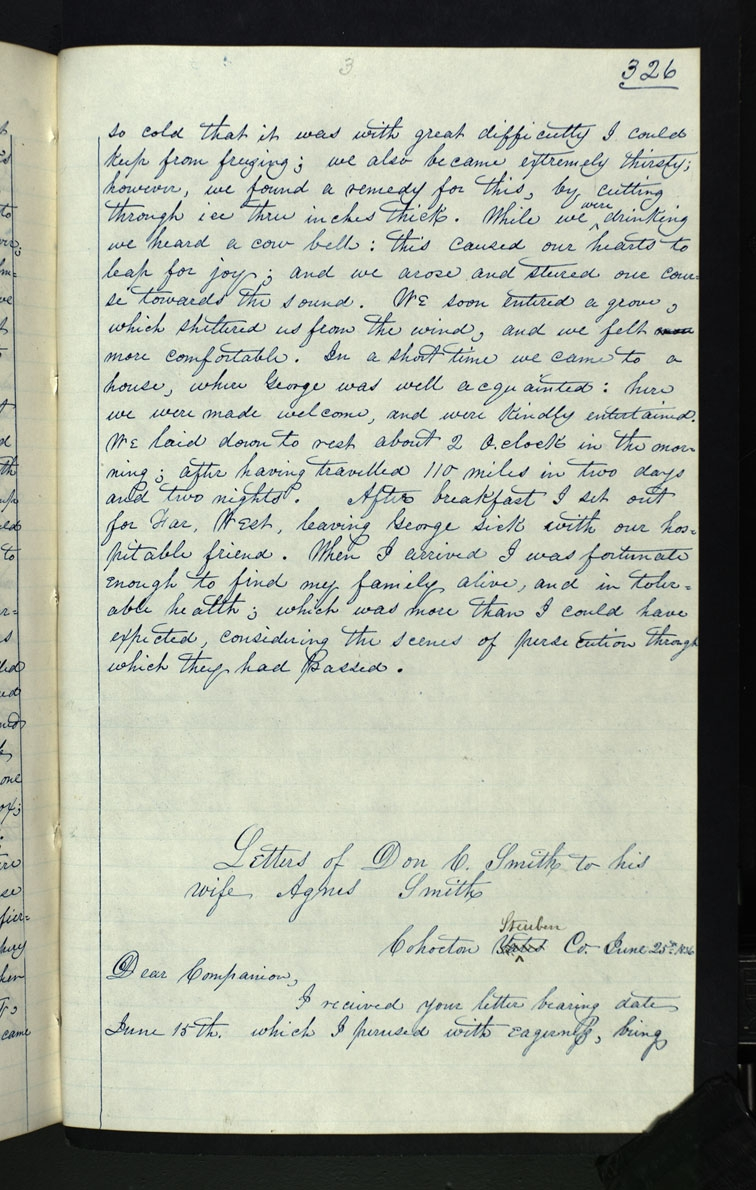 3
326
so cold that it was with great difficulty I could
keep from freezing; we also became extremely thirsty;
however, we found a remedy for this, by cutting
through ice three inches thick. While we were drinking
we heard a cow bell: this caused our hearts to
leap for joy; and we arose and steered our cour=
se towards the sound. We soon entered a grove,
which sheltered us from the wind, and we felt
more comfortable. In a short time we came to a
house, where George was well acquainted: here
we were made welcome, and were kindly entertained.
We laid down to rest about 2 O.clock in the mor=
ning; after having travelled 110 miles in two days
and two nights. After breakfast I set out
for Far, West, leaving George sick with our hos=
pitable friend. When I arrived I was fortunate
enough to find my family alive, and in toler=
able health; which was more than I could have
expected, considering the scenes of persecution through
which they had Passed.
Letters of Don C. Smith to his
wife Agnes Smith
Cohocton Steuben Co. June 25th 1836
Dear Companion,
I received your letter bearing date
June 15th. which I perused with eagerness, being